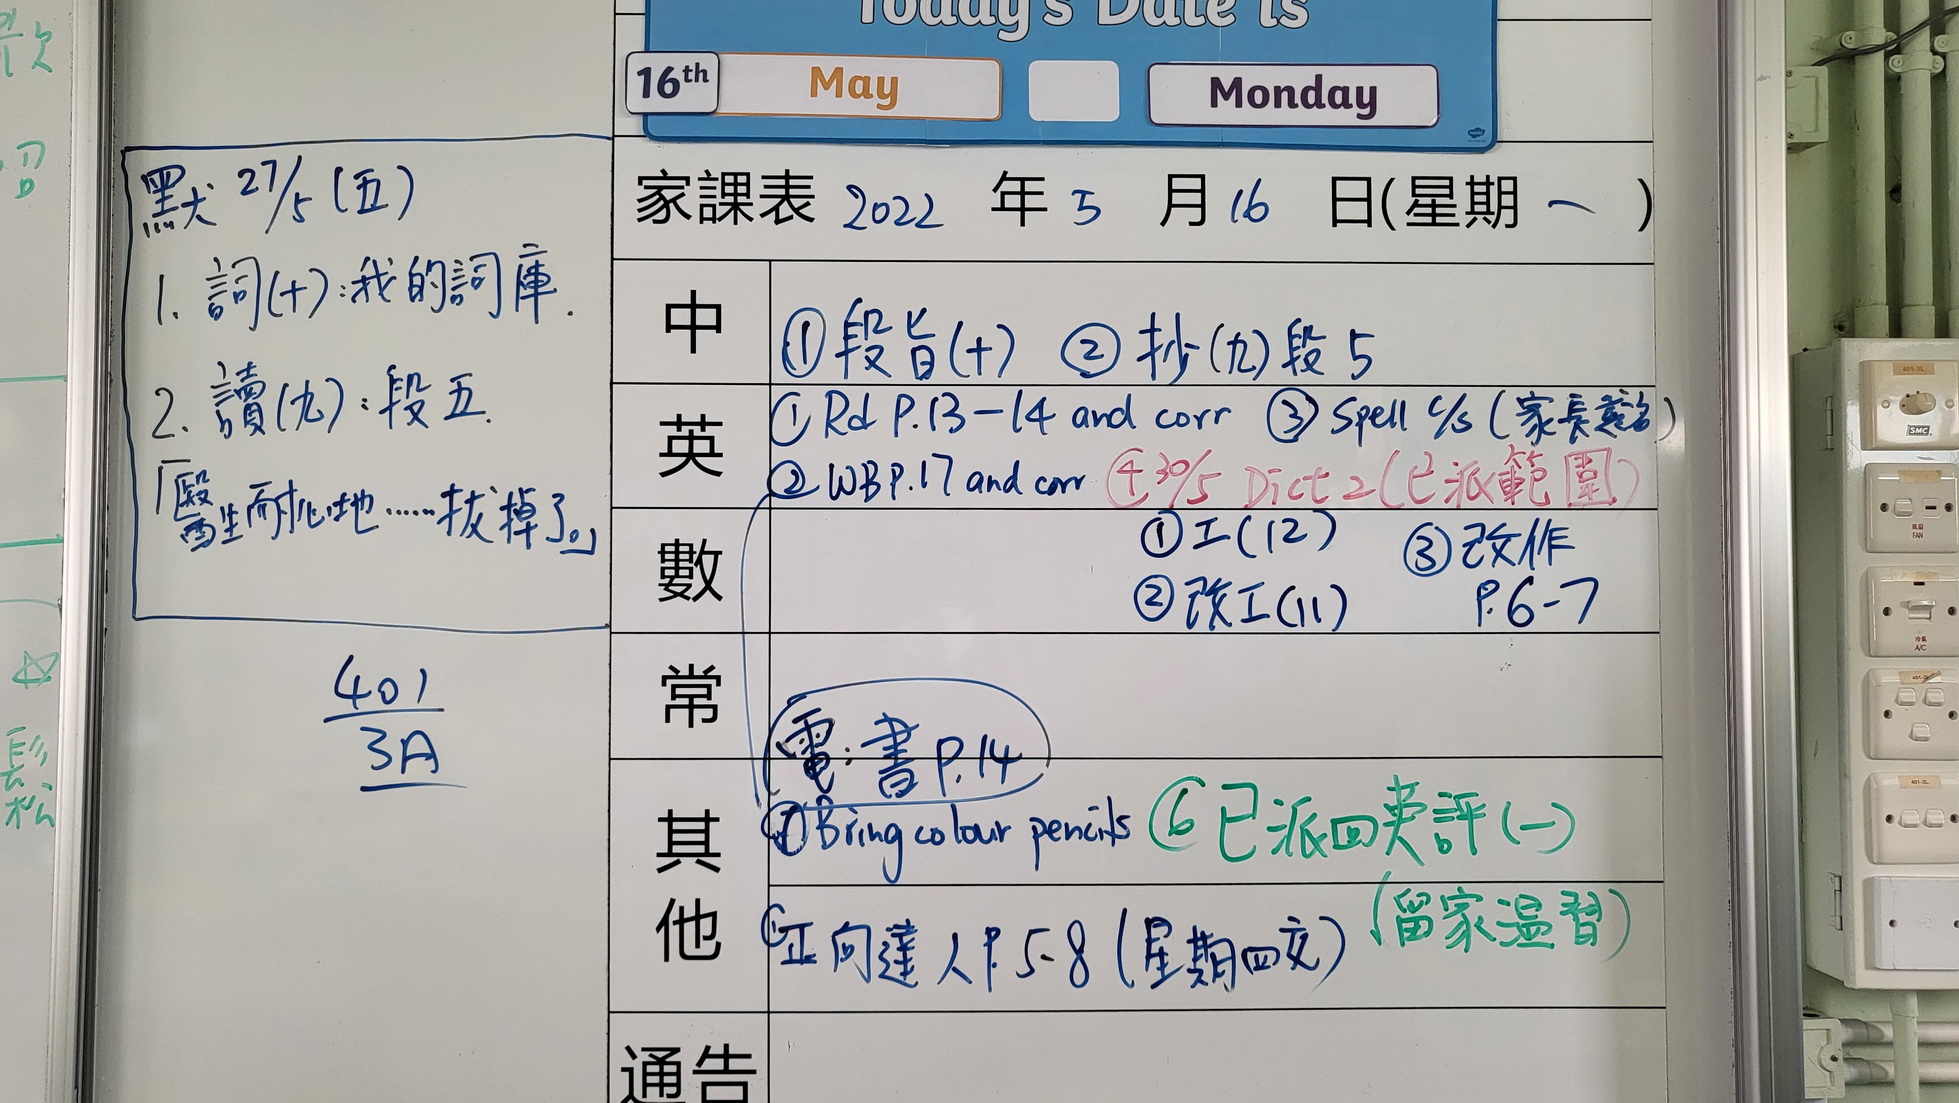 Today's Date is
16th May Monday
默 27/5 (五)
1. 詞(十):我的詞庫.
2. 讀(九):段五.
「醫生耐心地……拔掉了。」
401
3A
家課表 2022 年 5 月 16 日(星期 一 )
中
①段旨(十) ②抄(九)段 5
英
①Rd P.13-14 and corr ③Spell c/s (家長簽名)
②WB P.17 and corr ④30/5 Dict 2 (已派範圍)
數
①工(12) ③改作
②改工(11) P.6-7
常
電:書 P.14
其他
Bring colour pencils ⑥已派四 評(一)
正向達人 P.5-8 (星期四交) (留家温習)
通告
401-2L
SMC
風扇
FAN
冷氣
A/C
401-2L
401-2L
鬆